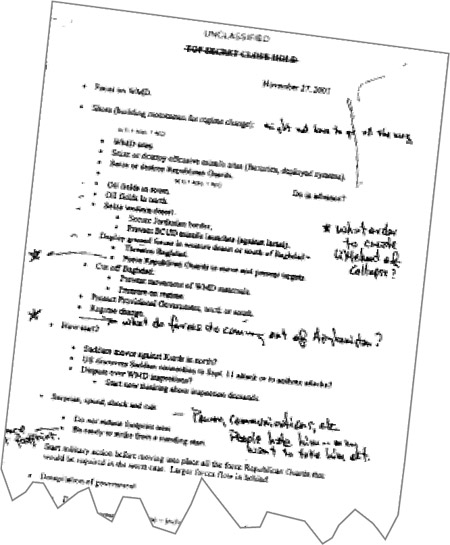 UNCLASSIFIED
TOP SECRET CLOSE HOLD
November 27, 2001
Focus on WMD.
Show (building momentum for regime change):
might not have to go all the way
WMD sites
Seize or destroy offensive missile sites (factories, deployed systems).
Seize or destroy Republican Guards.
Do in advance?
Oil fields in south.
Oil fields in north.
Seize western desert.
Secure Jordanian border,
Prevent SCUD missile launches (against Israel).
what order to create likelihood of collapse?
Deploy ground forces in western desert or south of Baghdad –
Threaten Baghdad.
Force Republican Guards to move and present targets.
Cut off Baghdad.
Prevent movement of WMD materials.
Pressure on regime.
Protect Provisional Government, north or south.
Regime change.
what do forces do coming out of Afghanistan?
How start?
Saddam moves against Kurds in north?
US discovers Saddam connection to Sept. 11 attack or to anthrax attacks?
Dispute over WMD inspections?
Start now thinking about inspection demands.
Surprise, speed, shock and
Power, communications, etc.
Do not
Be ready to strike from a standing start.
People hate him – may want to take him out.
Start military action before moving into place all the force Republican Guards that
would be required in the worst case. Larger forces flow in behind.
of government